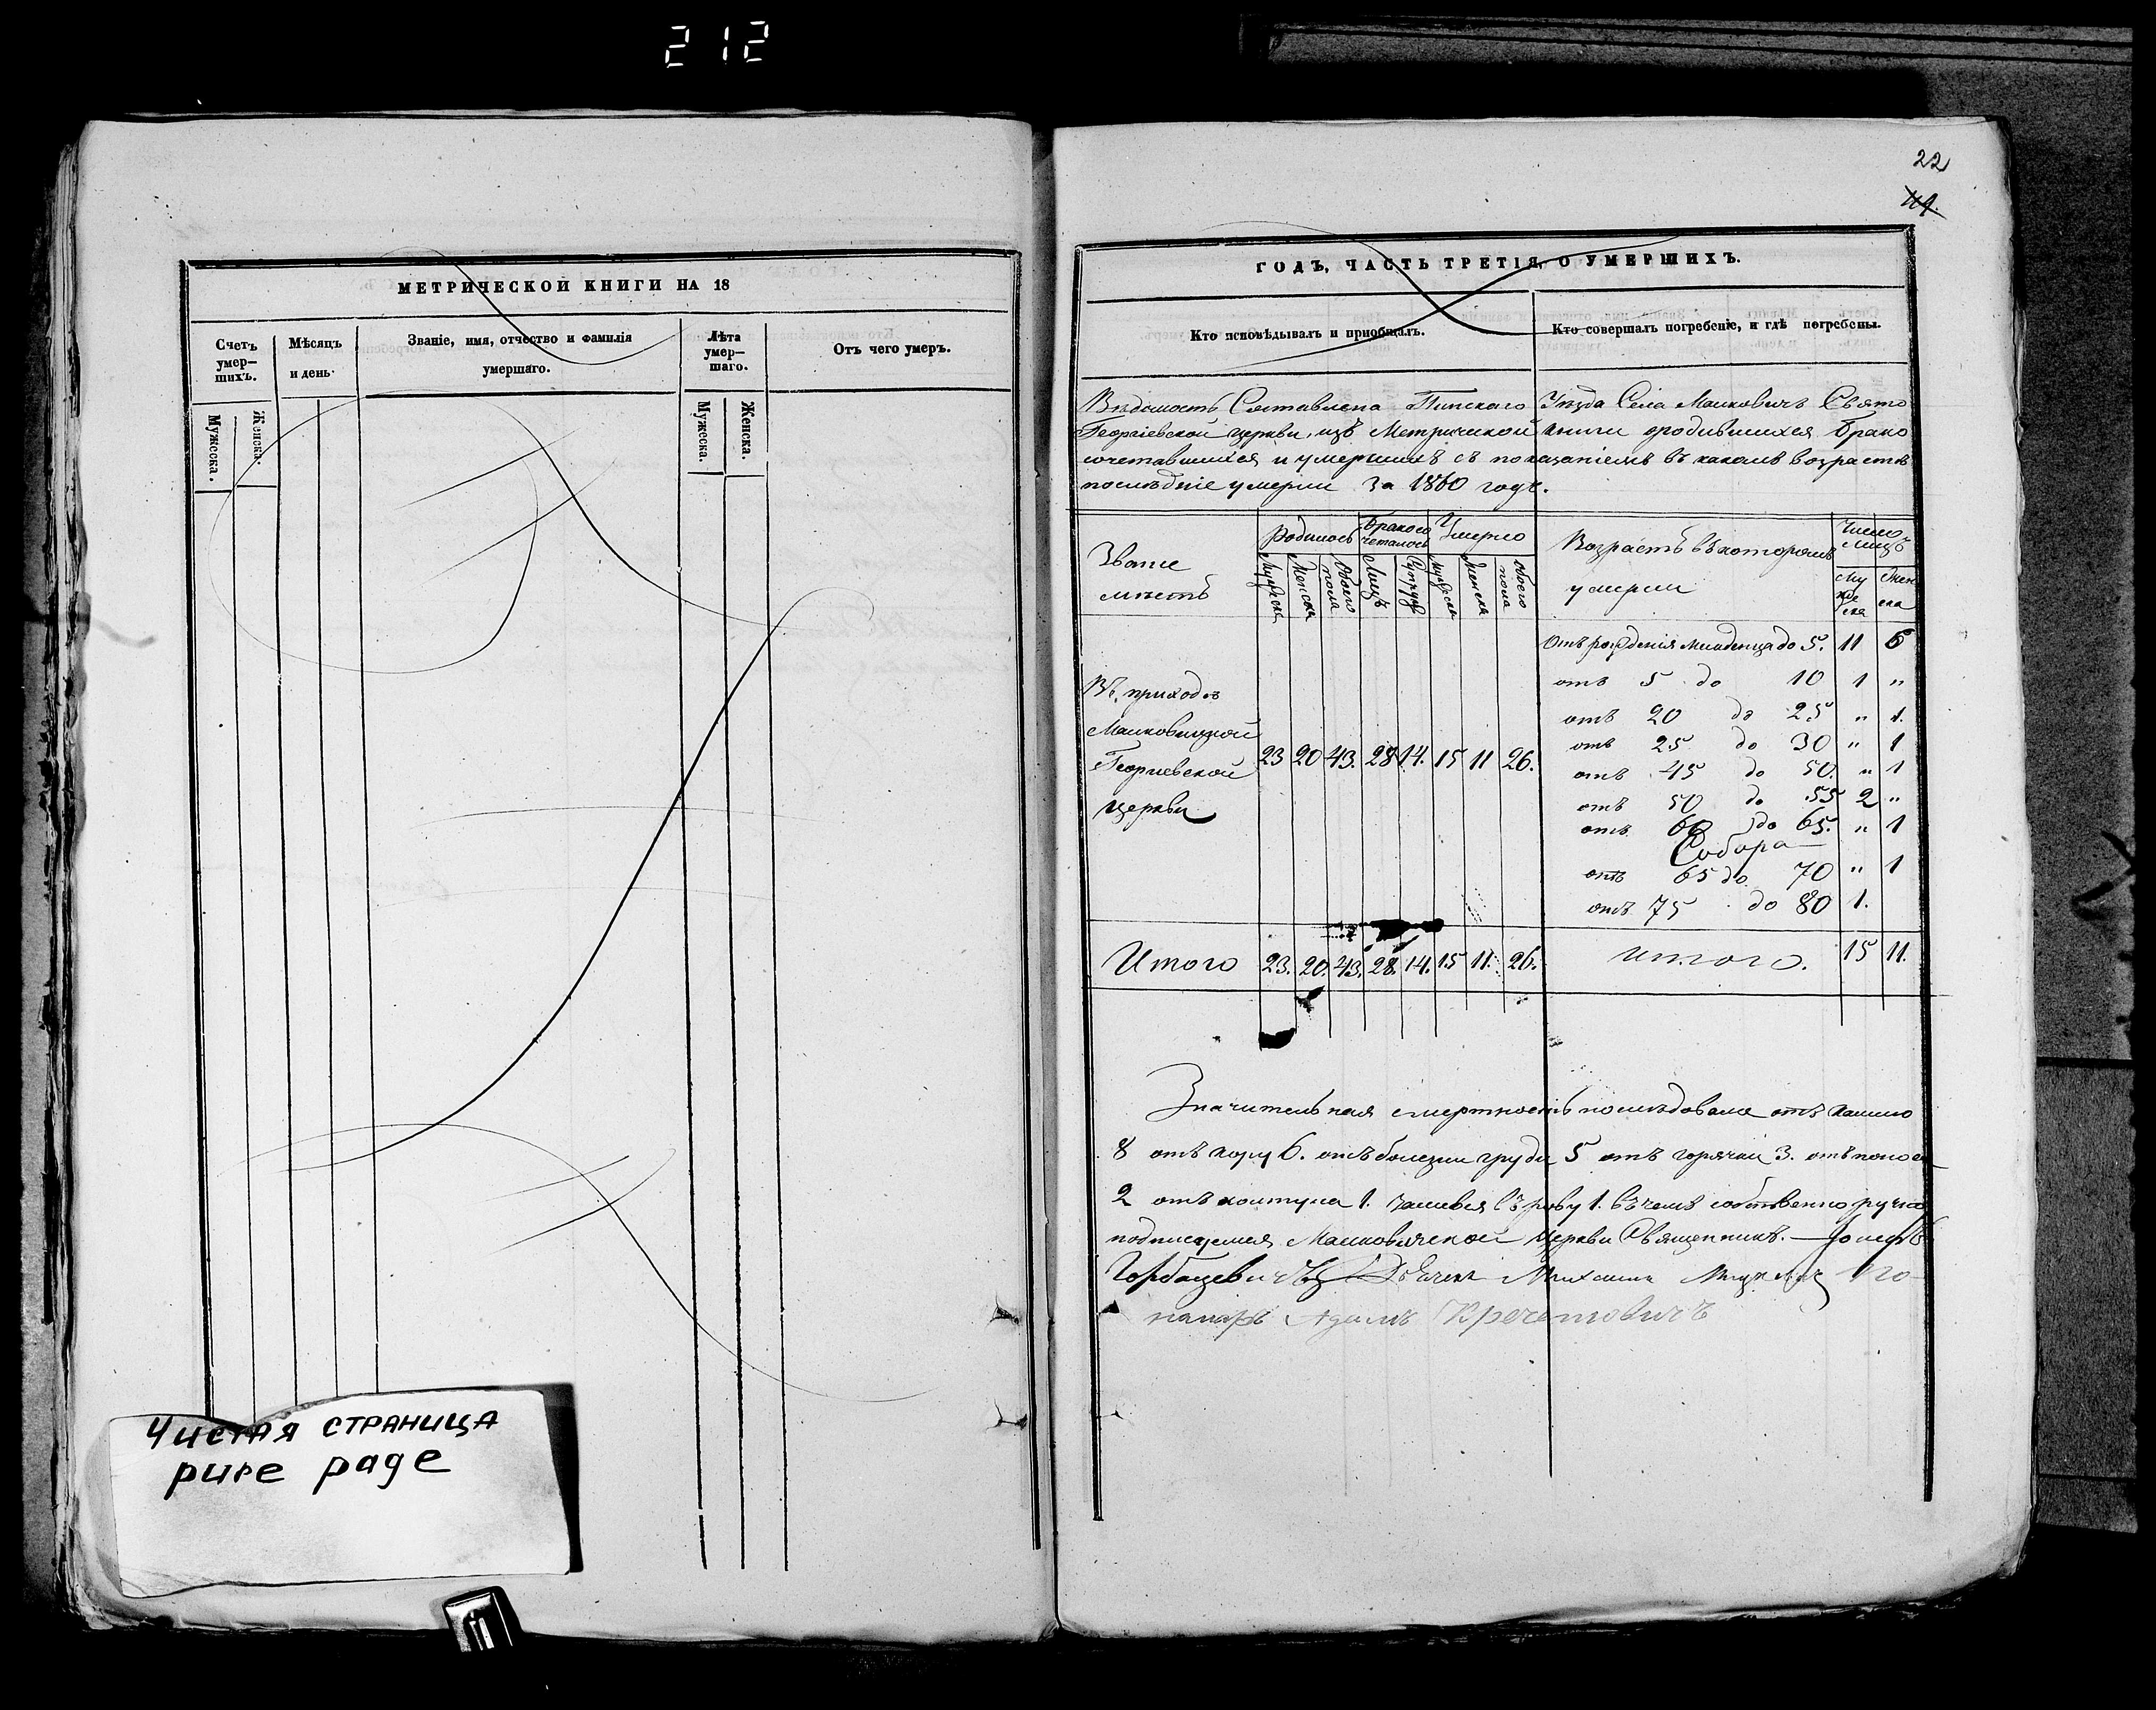 212
МЕТРИЧЕСКОЙ КНИГИ НА 18
Счетъ умер—шихъ.
Мужеска.
Женска.
Мѣсяцъ и день.
Званіе, имя, отчество и фамилія умершаго.
Лѣта умер—шаго.
Мужеска.
Женска.
Отъ чего умеръ.
Чистая страница
pure page
22
ГОДЪ, ЧАСТЬ ТРЕТІЯ, О УМЕРШИХЪ.
Кто исповѣдывалъ и пріобщалъ.
Кто совершалъ погребеніе, и гдѣ погребены.
Вѣдомость Составлена Пинскаго Уѣзда Села Малковичъ Свято
Георгіевской церкви, изъ Метрической книги о родившихся Брако
сочетавшихся и умершихъ съ показаніемъ въ какомъ возрастѣ
послѣдніе умерли За 1860 годъ.
Званіе мѣстъ
Родилось
Мужеска
Женска
Обоего пола
Бракосочеталось
Лицъ
Супруж
Умерло
Мужеска
Женска
обоего пола
Возрастъ въ которомъ умерли
Число лицъ
Мужеска
Женска
Отъ рожденія младенца до 5. 11 6
отъ 5 до 10 1 "
отъ 20 до 25 " 1.
отъ 25 до 30 " 1
отъ 45 до 50. " 1
отъ 50 до 55 2 "
отъ 60 до 65. " 1
отъ 65 до 70 " 1
отъ 75 до 80 1.
Въ приходѣ
Малковицкой
Георгіевской
церкви
23 20 43. 28 14. 15 11 26.
Итого 23. 20. 43. 28. 14. 15 11. 26.
Итого. 15 11.
Значительная смертность послѣдовала отъ кашлю
8 отъ кору 6. отъ болезни груди 5 отъ горячки 3. отъ поноса
2 отъ колтуна 1. 1. въ чемъ собственно ручно
подписуемся церкви Священникъ. — Іосифъ
Горбацевичъ Дьячекъ Михаилъ По-
номарь Адамъ Кречетовичъ